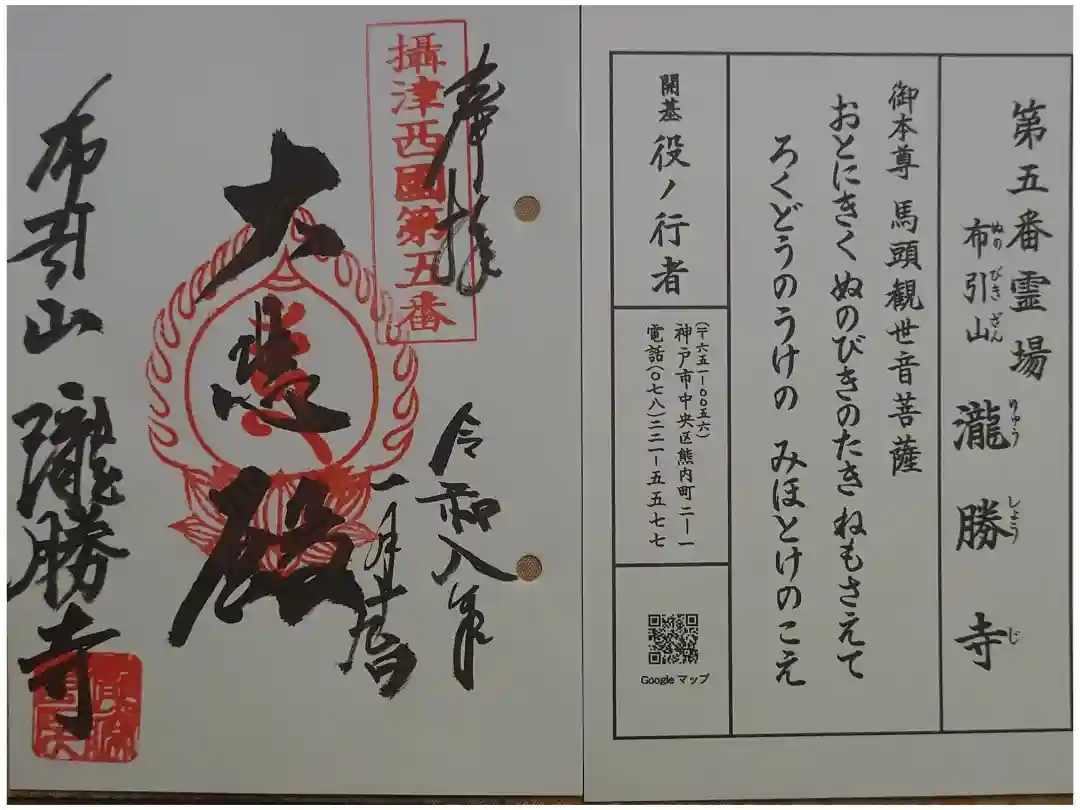 第五番霊場
布引山 瀧勝寺
ぬのびきざん りゅうしょうじ
御本尊 馬頭観世音菩薩
おとにきく ぬのびきのたき ねもさえて
ろくどうのうけの みほとけのこえ
開基 役ノ行者
(〒六五一-〇〇五六)
神戸市中央区熊内町二-一
電話(〇七八)二二一-五五七七
Google マップ
奉拝
攝津西國第五番
令和八年
一月十九日
大悲殿
布引山 瀧勝寺